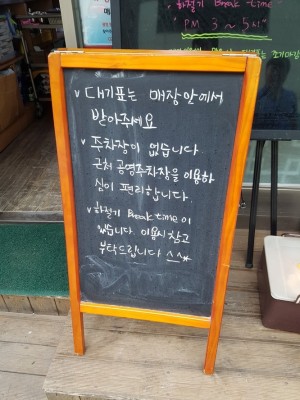 하절기 Break time
"PM 3~5시"
v 대기표는 매장안에서
받아주세요
v 주차장이 없습니다.
근처 공영주차장을 이용하
심이 편리합니다.
v 하절기 Break time 이
있습니다. 이용시 참고
부탁드립니다 ^^*